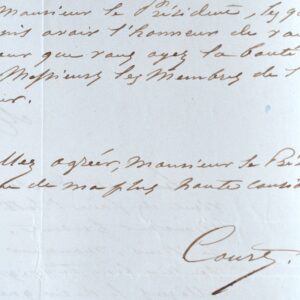 Monsieur le Président, les q
ens avoir l'honneur de vou
eur que vous ayez la bonté
Messieurs les Membres de l
ur.
llez agréer, Monsieur le Pré
de ma plus haute consi
Court.